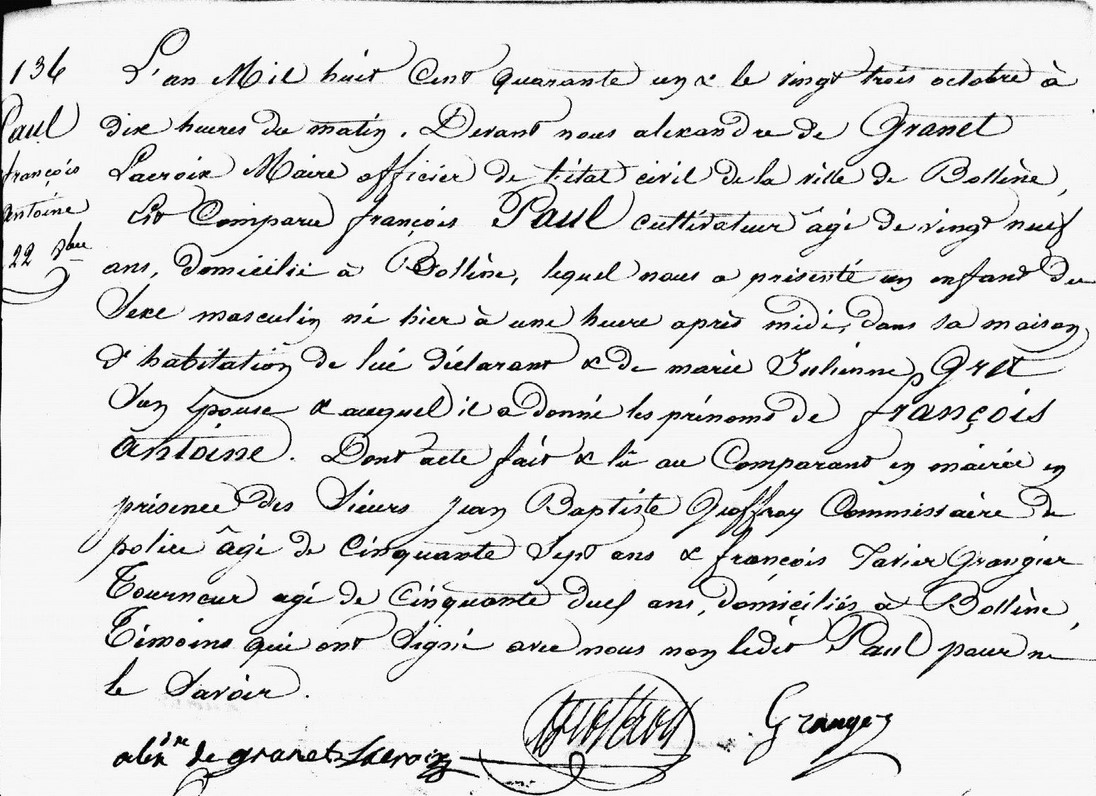 136
Paul
françois
antoine
22 8bre
L'an Mil huit Cent quarante un & le vingt trois octobre à
dix heures du matin. Devant nous alexandre de Granet
Lacroix Maire officier de l'état civil de la ville de Bollène,
Est Comparu françois Paul cultivateur âgé de vingt neuf
ans, domicilié à Bollène, lequel nous a présenté un enfant du
Sexe masculin né hier à une heure après midi, dans sa maison
d'habitation de lui déclarant & de marie Julienne Gret
Son Epouse & auquel il a donné les prénoms de françois
antoine. Dont acte fait & lu au Comparant en mairie en
présence des Sieurs jean Baptiste Geoffroy Commissaire de
police âgé de Cinquante Sept ans & françois Xavier Grangier
Tourneur agé de Cinquante ans, domiciliés à Bollène,
Témoins qui ont Signé avec nous non ledit Paul pour ne
le Savoir.
alexdre de granet Lacroix Geoffroy Grangez